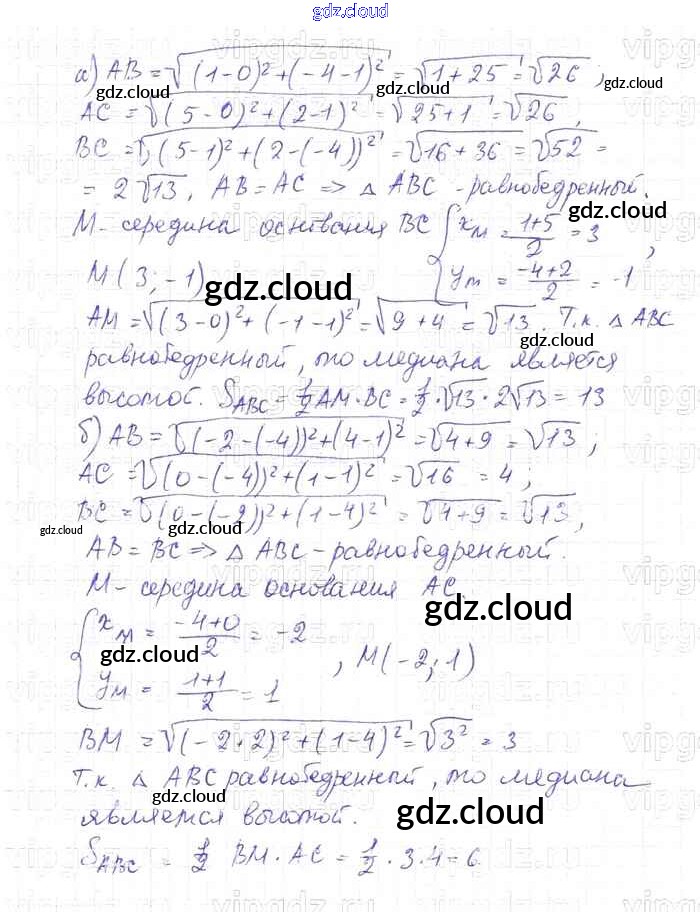 gdz.cloud
а) AB = √((1-0)²+(-4-1)²) = √(1+25) = √26;
gdz.cloud
gdz.cloud
AC = √((5-0)²+(2-1)²) = √(25+1) = √26,
BC = √((5-1)²+(2-(-4))²) = √(16+36) = √52 =
= 2√13, AB = AC => △ ABC - равнобедренный.
gdz.cloud
M - середина основания BC { x_M = (1+5)/2 = 3
M(3; -1) { y_M = (-4+2)/2 = -1,
gdz.cloud
AM = √((3-0)²+(-1-1)²) = √(9+4) = √13. Т.к. △ ABC
gdz.cloud
равнобедренный, то медиана является
высотой. S_ABC = 1/2 AM·BC = 1/2·√13·2√13 = 13
gdz.cloud
б) AB = √((-2-(-4))²+(4-1)²) = √(4+9) = √13;
AC = √((0-(-4))²+(1-1)²) = √16 = 4;
gdz.cloud
BC = √((0-(-2))²+(1-4)²) = √(4+9) = √13,
gdz.cloud
gdz.cloud
AB = BC => △ ABC - равнобедренный.
M - середина основания AC.
gdz.cloud
{ x_M = (-4+0)/2 = -2
gdz.cloud
, M(-2; 1)
{ y_M = (1+1)/2 = 1
BM = √((-2+2)²+(1-4)²) = √3² = 3
Т.к. △ ABC равнобедренный, то медиана
gdz.cloud
является высотой.
gdz.cloud
S_ABC = 1/2 BM·AC = 1/2·3·4 = 6
gdz.cloud